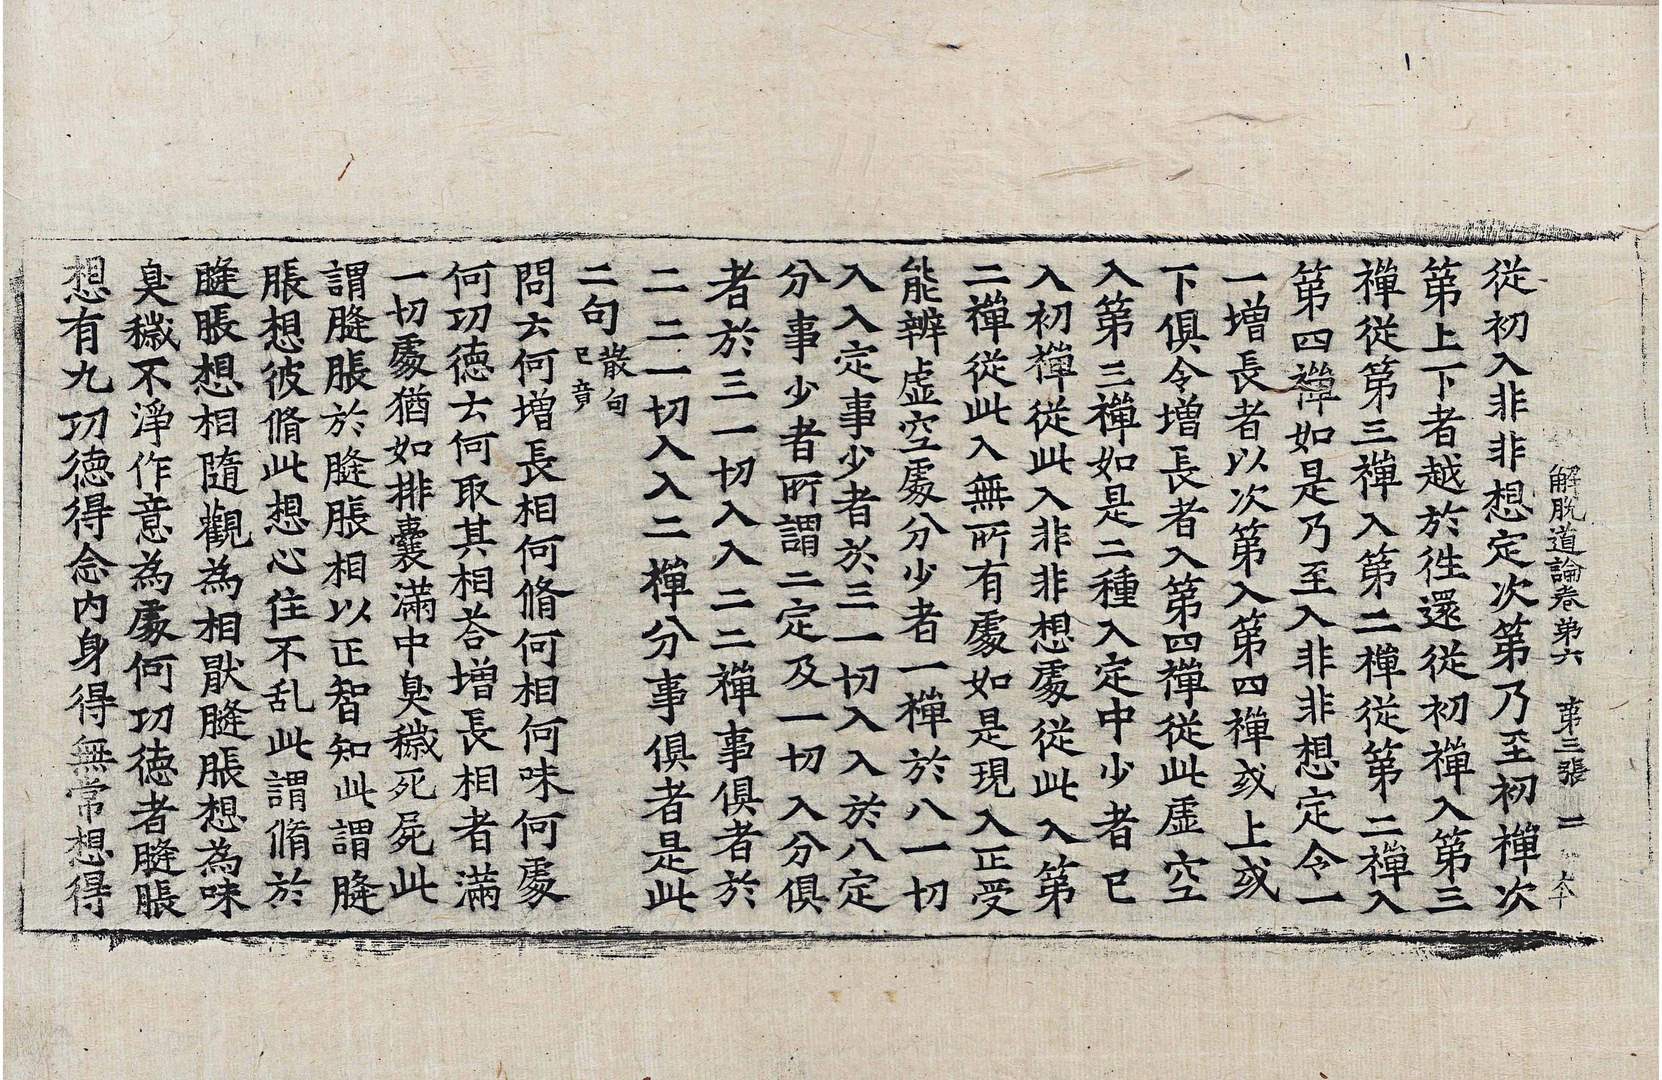 解脫道論卷第六　第三張
從初入非非想定次第乃至初禪次
第上下者越於徃還從初禪入第三
禪從第三禪入第二禪從第二禪入
第四禪如是乃至入非非想定令一
一增長者以次第入第四禪或上或
下俱令增長者入第四禪從此虛空
入第三禪如是二種入定中少者已
入初禪從此入非非想處從此入第
二禪從此入無所有處如是現入正受
能辨虛空處分少者一禪於八一切
入入定事少者於三一切入入於八定
分事少者所謂二定及一切入分俱
者於三一切入入二二禪事俱者於
二二一切入入二禪分事俱者是此
二句散句已竟
問云何增長相何脩何相何味何處
何功德云何取其相荅增長相者滿
一切處猶如排囊滿中臭穢死屍此
謂膖脹於膖脹相以正智知此謂膖
脹想彼脩此想心住不乱此謂脩於
膖脹想相隨觀為相厭膖脹想為味
臭穢不淨作意為處何功德者膖脹
想有九功德得念內身得無常想得